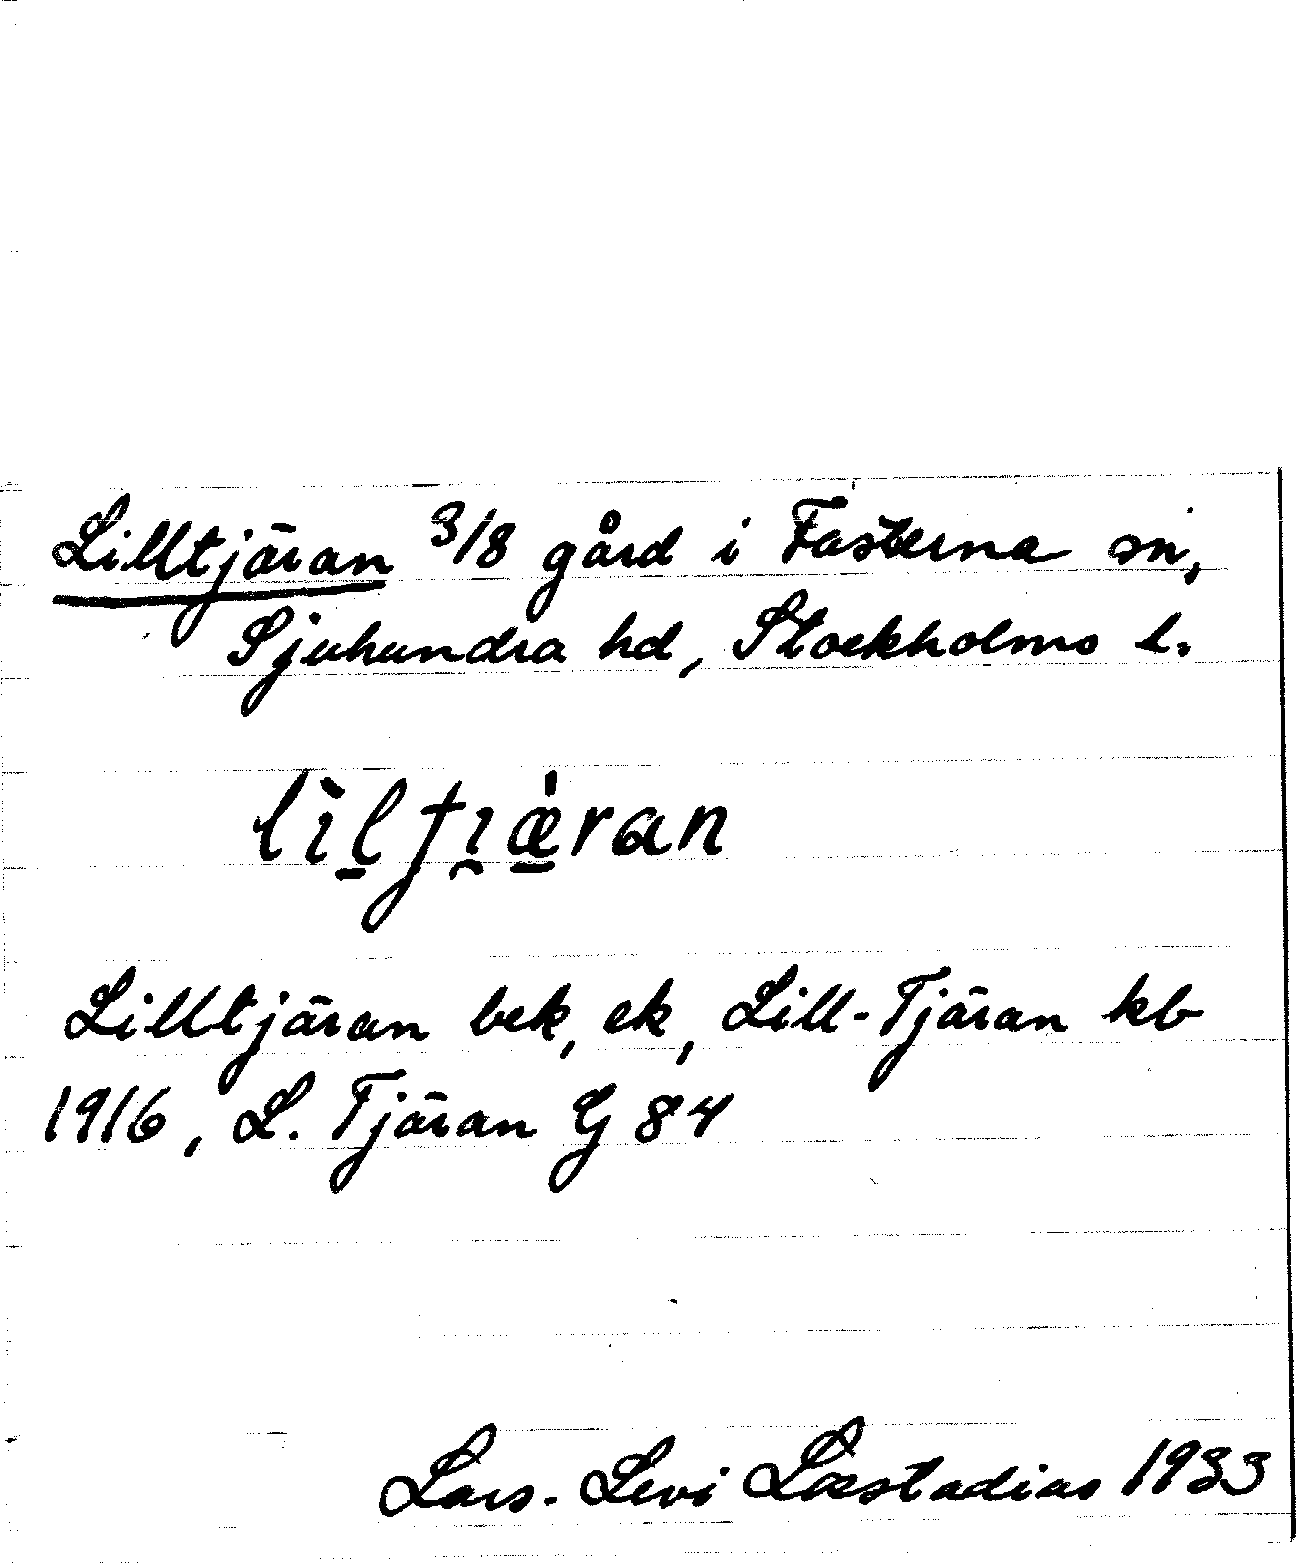 Lilltjäran 3/8 gård i Fasterna sn,
Sjuhundra hd, Stockholms l.
Lilltjäran bek, ek, Lill-Tjäran kb
1916, L. Tjäran G 84
Lars-Levi Læstadius 1933